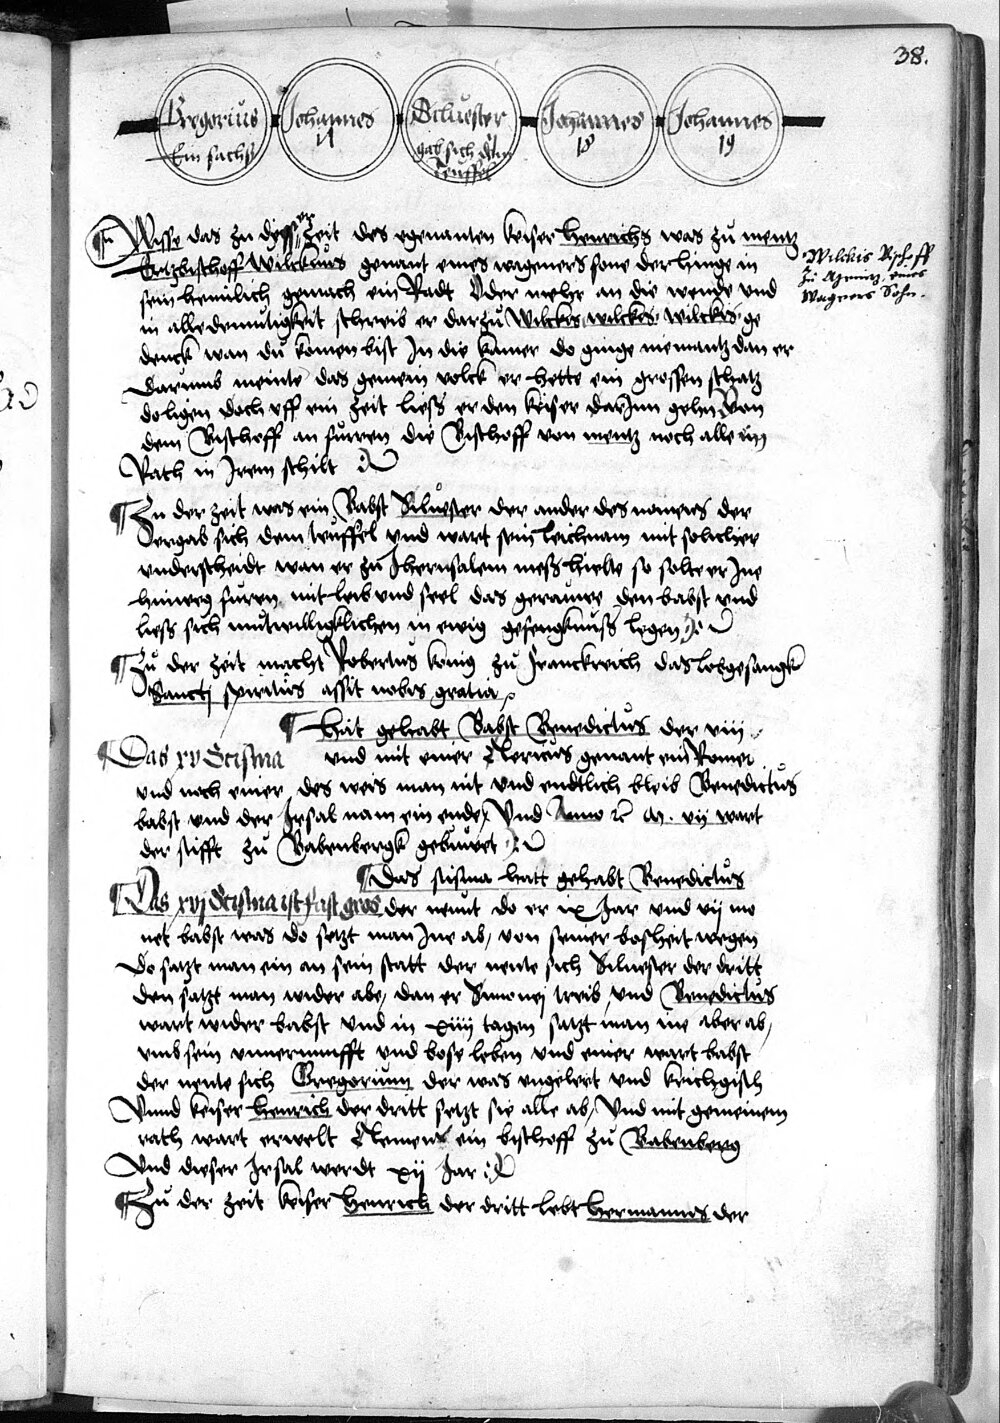 38.
Gregorius
Ein sachs
Johannes
17
Siluester
gab sich dem
teuffel
Johannes
18
Johannes
19
Wisse das zu dysser Zeit des egenanten keiser Henrichs was zu mentz
Ertzbischoff Wilckius genant eines wageners sone der hinge in
sein heimlich gemach ein Radt Oder mehr an die wende und
in alle demutigkeit schreib er darzu Wilckes wilckes wilckes ge
denck wan du komen bist In die kamer do ginge niemantz dan er
Darumb meinte das gemein volck er hette ein grossen schatz
doligen doch uff ein zeit liess er den keiser darInn gehn Von
dem Bischoff an furren die Bischoff von mentz noch alle ein
Rath in Irem schilt
Wilckis Bischoff
zu Mentz eines
Wagners Sohn.
Zu der zeit was ein Babst Siluester der ander des namens der
vergab sich dem teuffel und wart sein leichnam mit solicher
underscheidt wan er zu Jherusalem mess hielte so solte er Ine
hinweg furen mit leib und seel das gerauwe den babst und
liess sich mutwilligklichen in ewig gefengknuss legen
Zu der zeit macht Robertus konig zu Franckreich das lobgesangk
Sancti spiritus assit nobis gratia
Hat gehabt Babst Benedictus der viii
Das xv Scisma und mit einer Clericus genant ein Romer
und noch einer des weis man nit und endtlich bleib Benedictus
babst und der Irsal nam ein ende Und Anno M. vij wart
der stifft zu Babenbergk gebuwet
Das scisma hatt gehabt Benedictus
Das xvj Scisma ist fast gros der neunt do er ix Jar und vij mo
net babst was do setzt man Ine ab, von seiner bosheit wegen
Do satzt man ein an sein statt der nente sich Siluester der dritt
den satzt man wider abe, dan er Simoney treib, und Benedictus
wart wider babst und in xiiij tagen satzt man ine aber ab,
umb sein unvernunfft und bose leben und einer wart babst
der nente sich Gregorium der was ungelert und krichgisch
Unnd keiser Henrich der dritt setzt sie alle ab, Und mit gemeinem
rath wart erwelt Clemens ein bischoff zu Babenberg
Und dieser Irsal werdt xij Jar
Zu der zeit keiser Henrich der dritt lebt Hermannus der